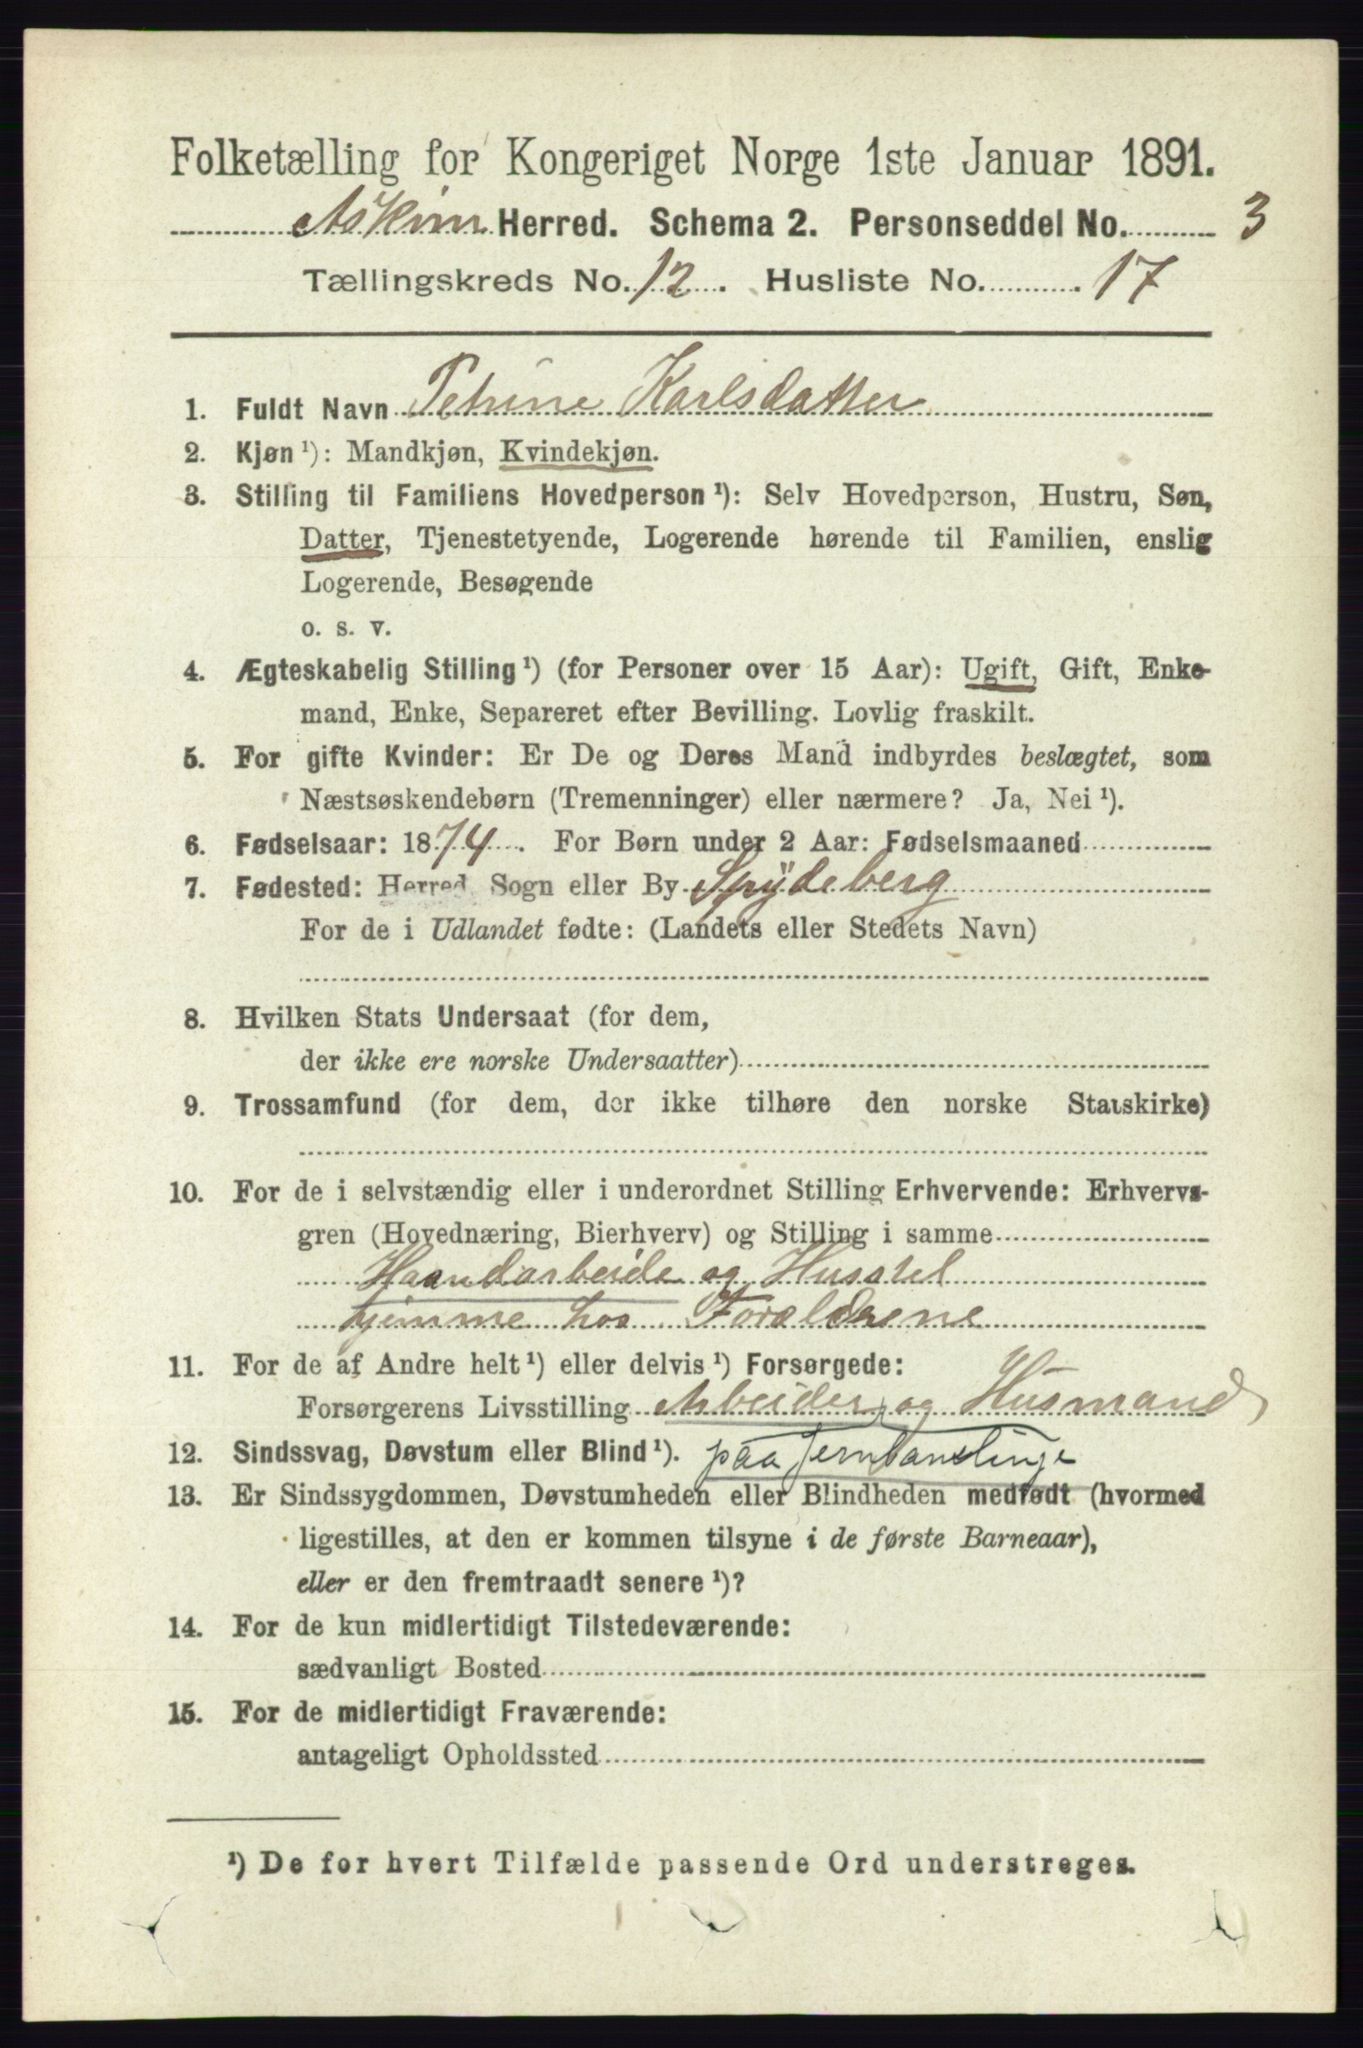 Folketælling for Kongeriget Norge 1ste Januar 1891.
Askim Herred. Schema 2. Personseddel No. 3
Tællingskreds No. 12. Husliste No. 17
1. Fuldt Navn Petrine Karlsdatter
2. Kjøn ¹): Mandkjøn, Kvindekjøn.
3. Stilling til Familiens Hovedperson ¹): Selv Hovedperson, Hustru, Søn,
Datter, Tjenestetyende, Logerende hørende til Familien, enslig
Logerende, Besøgende
o. s. v.
4. Ægteskabelig Stilling ¹) (for Personer over 15 Aar): Ugift, Gift, Enke-
mand, Enke, Separeret efter Bevilling. Lovlig fraskilt.
5. For gifte Kvinder: Er De og Deres Mand indbyrdes beslægtet, som
Næstsøskendebørn (Tremenninger) eller nærmere? Ja, Nei ¹).
6. Fødselsaar: 1874. For Børn under 2 Aar: Fødselsmaaned
7. Fødested: Herred, Sogn eller By Spydeberg
For de i Udlandet fødte: (Landets eller Stedets Navn)
8. Hvilken Stats Undersaat (for dem,
der ikke ere norske Undersaatter)
9. Trossamfund (for dem, der ikke tilhøre den norske Statskirke)
10. For de i selvstændig eller i underordnet Stilling Erhvervende: Erhvervs-
gren (Hovednæring, Bierhverv) og Stilling i samme
Haandarbeide og Husstel
hjemme hos Forældrene
11. For de af Andre helt ¹) eller delvis ¹) Forsørgede:
Forsørgerens Livsstilling Arbeider og Husmand
12. Sindssvag, Døvstum eller Blind ¹). paa Jernbanelinje
13. Er Sindssygdommen, Døvstumheden eller Blindheden medfødt (hvormed
ligestilles, at den er kommen tilsyne i de første Barneaar),
eller er den fremtraadt senere ¹)?
14. For de kun midlertidigt Tilstedeværende:
sædvanligt Bosted
15. For de midlertidigt Fraværende:
antageligt Opholdssted
¹) De for hvert Tilfælde passende Ord understreges.